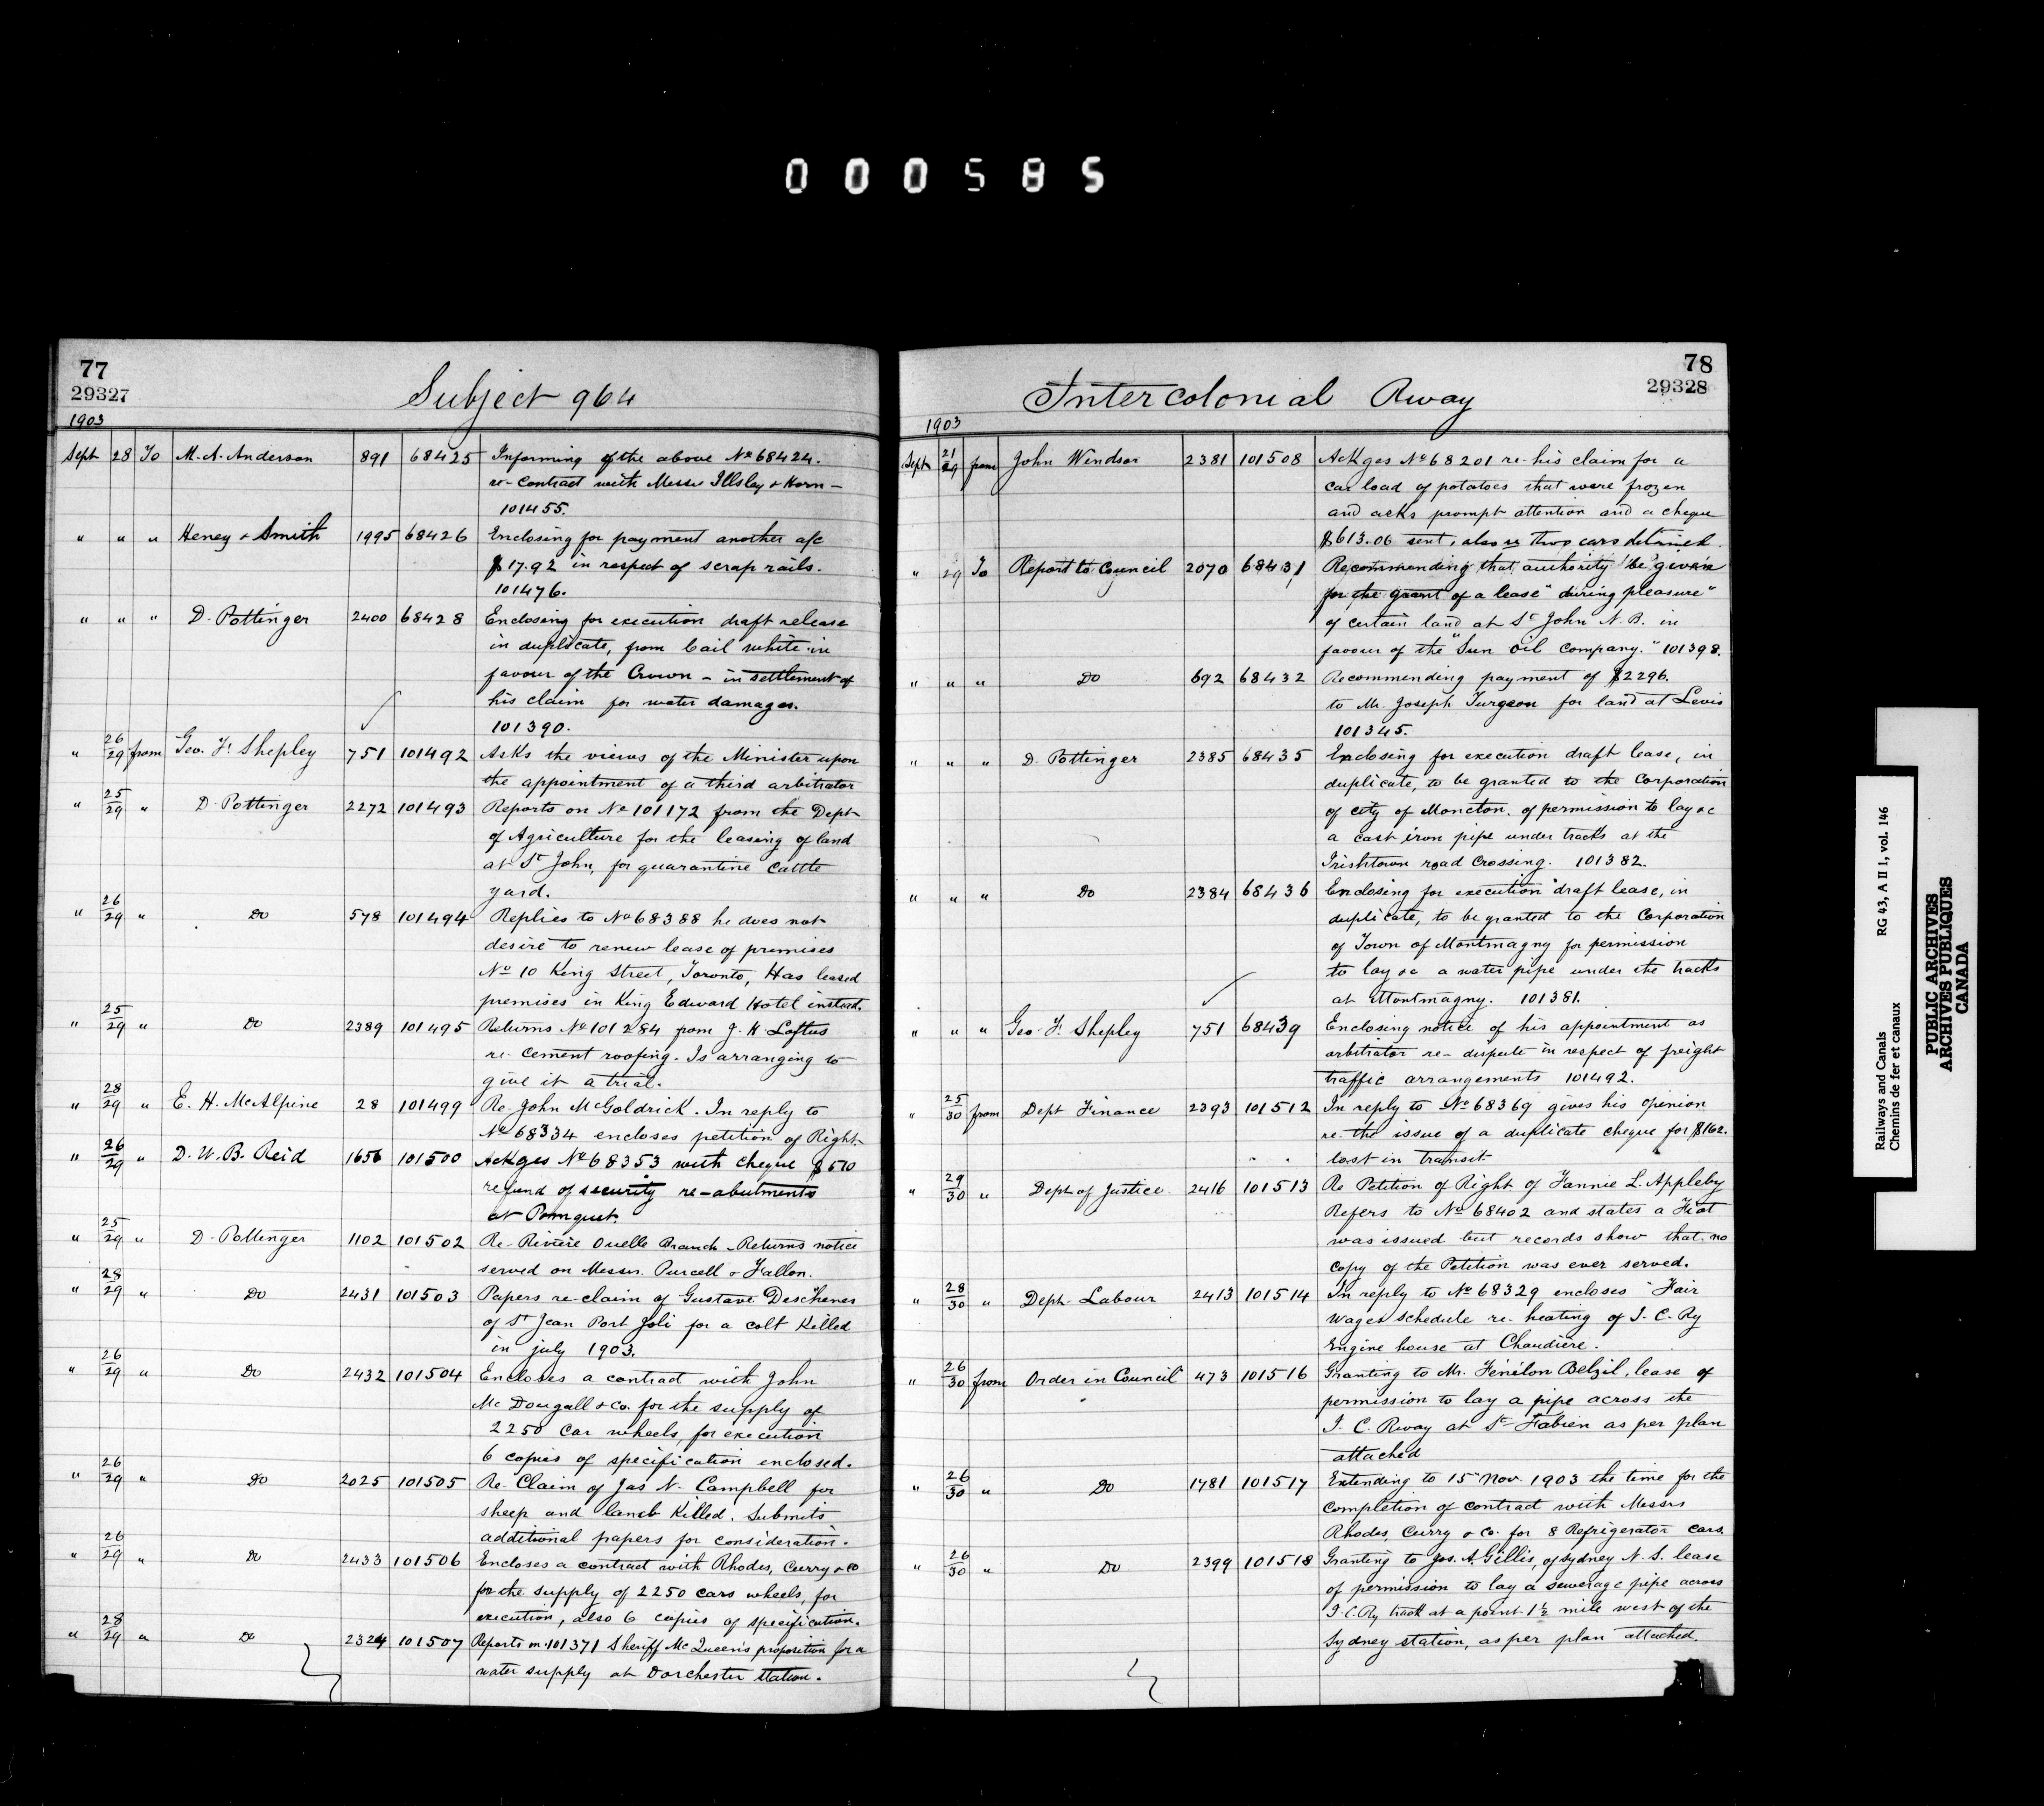 000585
77
29327
Subject 964
1903
Sept 28 To M. A. Anderson 891 68425 Informing of the above No 68424.
re-contract with Messrs Illsley & Horn -
101455.
" " " Heney & Smith 1995 68426 Enclosing for payment another a/c
$17.92 in respect of scrap rails.
101476.
" " " D. Pottinger 2400 68428 Enclosing for execution draft release
in duplicate, from Cail White in
favour of the Crown - in settlement of
his claim for water damages.
101390.
" 26/29 from Geo. F. Shepley 751 101492 Asks the views of the Minister upon
the appointment of a third arbitrator
" 25/29 " D. Pottinger 2272 101493 Reports on No 101172 from the Dept
of Agriculture for the leasing of land
at St John, for quarantine cattle
yard.
" 26/29 " Do 578 101494 Replies to No 68388 he does not
desire to renew lease of premises
No 10 King Street, Toronto, Has leased
premises in King Edward Hotel instead.
" 25/29 " Do 2389 101495 Returns No 101284 from J. H Loftus
re- cement roofing. Is arranging to
give it a trial.
" 28/29 " E. H. McAlpine 28 101499 Re- John McGoldrick. In reply to
No 68334 encloses petition of Right.
" 26/29 " D. W. B. Reid 1656 101500 Ackges No 68353 with cheque $570
refund of security re-abutments
at Pomquet.
" 25/29 " D. Pottinger 1102 101502 Re- Rivière Ouelle Branch - Returns notice
served on Messrs. Purcell & Fallon.
" 28/29 " Do 2431 101503 Papers re-claim of Gustave Deschenes
of St Jean Port Joli for a colt Killed
in july 1903.
" 26/29 " Do 2432 101504 Encloses a contract with John
McDougall & Co. for the supply of
2250 Car wheels, for execution
6 copies of specification enclosed.
" 26/29 " Do 2025 101505 Re- Claim of Jas N. Campbell for
sheep and lamb Killed. Submits
additional papers for consideration.
" 26/29 " Do 2433 101506 Encloses a contract with Rhodes, Curry & Co
for the supply of 2250 cars wheels, for
execution, also 6 copies of specification.
" 28/29 " Do 2324 101507 Reports on 101371 Sheriff McQueen's proposition for a
water supply at Dorchester station.
78
29328
Intercolonial Rway
1903
Sept 21/29 from John Windsor 2381 101508 Ackges No 68201 re- his claim for a
car load of potatoes that were frozen
and asks prompt attention and a cheque
$613.06 sent, also re two cars detained.
" 29 To Report to Council 2070 68431 Recommending that authority be given
for the grant of a lease "during pleasure"
of certain land at St John N. B. in
favour of the "Sun Oil Company." 101398.
" " " Do 692 68432 Recommending payment of $2296.
to Mr. Joseph Turgeon for land at Levis
101345.
" " " D. Pottinger 2385 68435 Enclosing for execution draft lease, in
duplicate, to be granted to the Corporation
of city of Moncton. of permission to lay &c
a cast iron pipe under tracks at the
Irishtown road Crossing. 101382.
" " " Do 2384 68436 Enclosing for execution draft lease, in
duplicate, to be granted to the Corporation
of Town of Montmagny for permission
to lay &c a water pipe under the tracks
at Montmagny. 101381.
" " " Geo. F. Shepley 751 68439 Enclosing notice of his appointment as
arbitrator re- dispute in respect of freight
traffic arrangements 101492.
" 25/30 from Dept Finance 2393 101512 In reply to No 68369 gives his opinion
re- the issue of a duplicate cheque for $162.
lost in transit.
" 29/30 " Dept of Justice 2416 101513 Re Petition of Right of Fannie L. Appleby
Refers to No 68402 and states a Fiat
was issued but records show that no
copy of the Petition was ever served.
" 28/30 " Dept. Labour 2413 101514 In reply to No 68329 encloses Fair
Wages schedule re- heating of I. C. Ry
Engine house at Chaudière.
" 26/30 from Order in Council 473 101516 Granting to Mr. Fénélon Belzil, lease of
permission to lay a pipe across the
I. C. Rway at St Fabien as per plan
attached
" 26/30 " Do 1781 101517 Extending to 15 Nov. 1903 the time for the
completion of contract with Messrs
Rhodes, Curry & Co. for 8 Refrigerator cars.
" 26/30 " Do 2399 101518 Granting to Jos. A. Gillis, of Sydney N. S. lease
of permission to lay a sewerage pipe across
I. C. Ry track at a point 1½ mile west of the
Sydney station, as per plan attached.
Railways and Canals RG 43, A II 1, vol. 146
Chemins de fer et canaux
PUBLIC ARCHIVES
ARCHIVES PUBLIQUES
CANADA